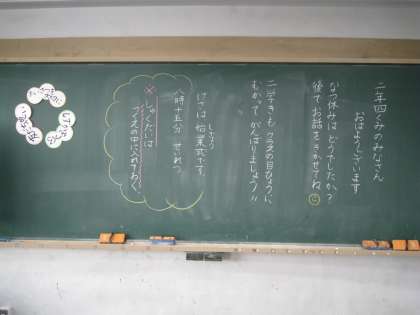 二年四くみのみなさん
おはようございます
なつ休みは どうでしたか?
後でお話をきかせてね
二学きも クラスの目ひょうに
むかってがんばりましょう!!
けさは 始業式です。
しぎょう
八時十五分 せいれつ
※しゅくだいは
つくえの中に入れておく。